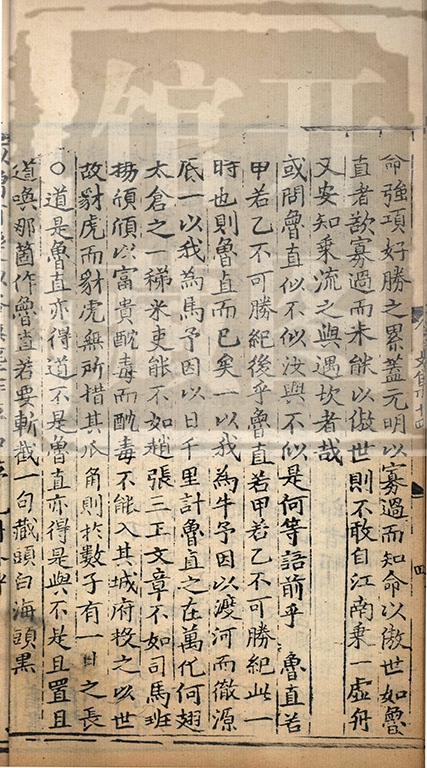 命強項好勝之累蓋元明以寡過而知命以傲世如魯
直者欲寡過而未能以傲世則不敢自江南乗一虚舟
又安知乗流之與遇坎者哉
或問魯直似不似汝與不似是何等語前乎 魯直若
甲若乙不可勝紀後乎魯直若甲若乙不可勝紀此一
時也則魯直而已矣一以我為牛予因以渡河而徹源
底一以我為馬予因以日千里計魯直之在萬化何翅
太倉之一稊米吏能不如趙張三王文章不如司馬班
揚頎頎以富貴酖毒而酖毒不能入其城府投之以世
故豺虎而豺虎無所措其爪角則扵數子有一日之長
○道是魯直亦得道不是魯直亦得是與不是且置且
道喚那箇作魯直若要斬截一句藏頭白海頭黒